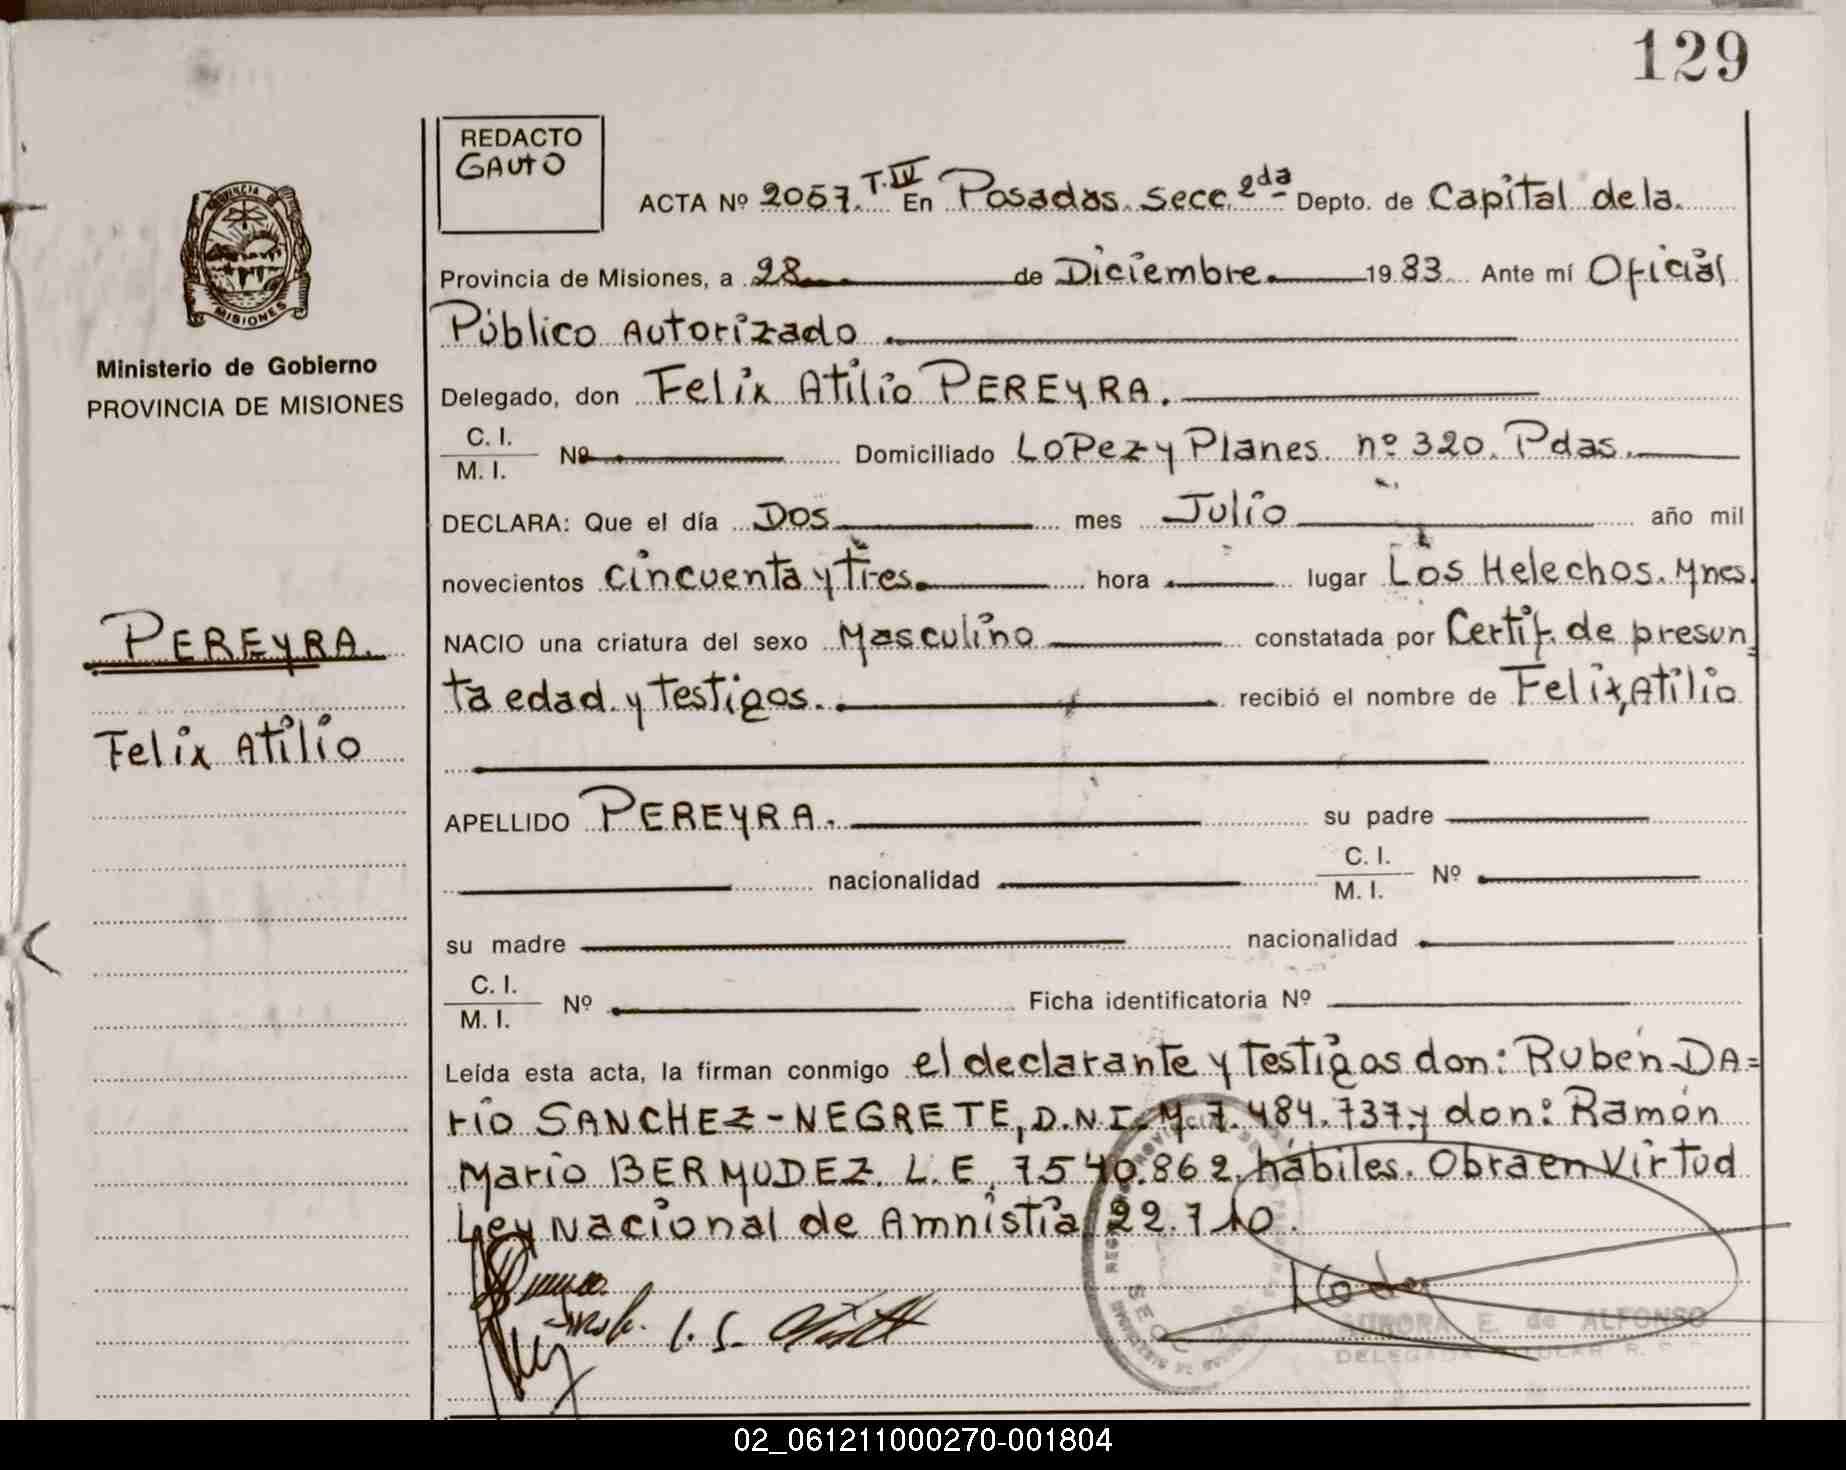 129
REDACTO
GAUTO
ACTA Nº 2057. T. IV En Posadas. Secc. 2da Depto. de Capital de la
Provincia de Misiones, a 28 de Diciembre. 1983 Ante mí Oficial
Público Autorizado
PROVINCIA
MISIONES
Ministerio de Gobierno
PROVINCIA DE MISIONES
Delegado, don Felix Atilio PEREYRA.
C. I.
M. I. Nº Domiciliado LoPez y Planes. nº 320. Pdas.
DECLARA: Que el día Dos mes Julio año mil
novecientos cincuenta y tres. hora lugar Los Helechos. Mnes.
NACIO una criatura del sexo Masculino constatada por Certif. de presun=
ta edad y testigos. recibió el nombre de Felix, Atilio
PEREYRA.
Felix Atilio
APELLIDO PEREYRA. su padre
nacionalidad C. I.
M. I. Nº
su madre nacionalidad
C. I.
M. I. Nº Ficha identificatoria Nº
Leída esta acta, la firman conmigo el declarante y testigos don: Rubén DA=
rio SANCHEZ-NEGRETE, D.N.I. M 7.484.737 y don: Ramón
Mario BERMUDEZ. L. E. 7.540.862. hábiles. Obra en Virtud
Ley Nacional de Amnistia 22.710.
AURORA E. de ALFONSO
DELEGADA TITULAR R.
02_061211000270-001804